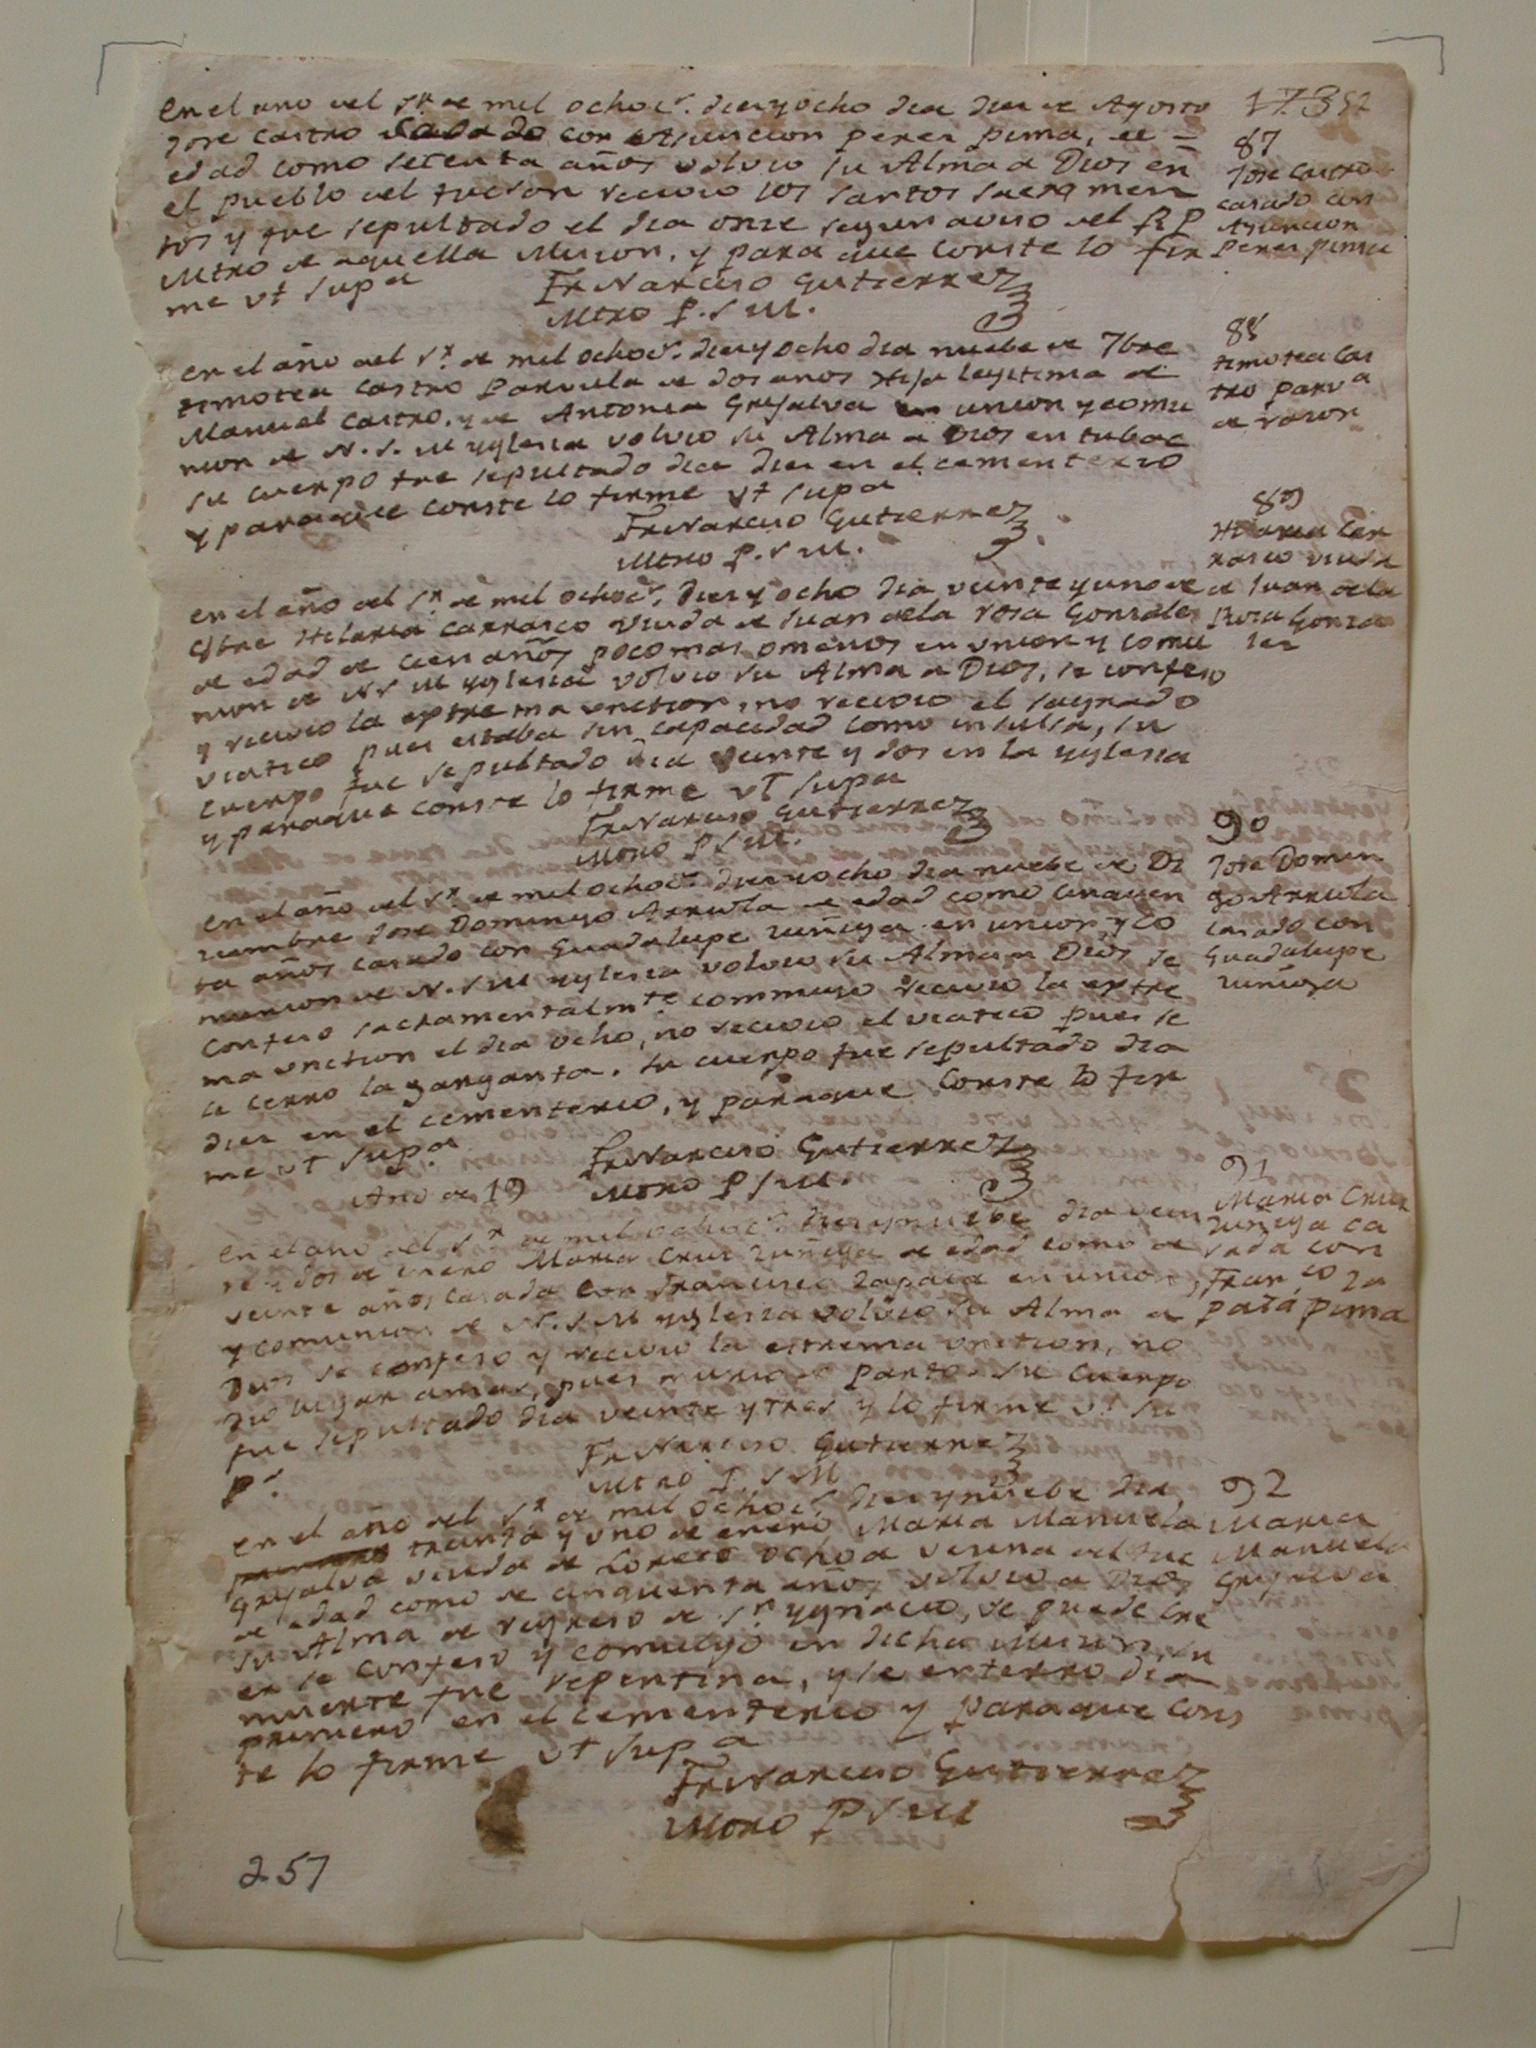 173 52
en el año del Sr. de mil ochocs. diez y ocho dia diez de Agosto
Jose Castro Casado con Asuncion Perez pima, de
edad como setenta años volvio su Alma a Dios en
el pueblo del tucson recivio los santos sacramen
tos y fue sepultado el dia onze segun aviso del R P
Mtro de aquella Micion, y para que conste lo fir
me ut supa
Fr Narciso Gutierrez
Mtro P. S M.
87
Jose Castro
casado con
Asuncion
Perez pima
en el año del Sr. de mil ochocs. diez y ocho dia nuebe de 7bre
timotea Castro Parvula de dos anos Hija legitima de
Manuel Castro, y de Antonia Grijalva en union y comu
nion de N. S. M yglesia volvio su Alma a Dios en tubac
su cuerpo fue sepultado dia diez en el cementerio
y paraque conste lo firme ut supa
Fr Narciso Gutierrez
Mtro P. S M.
88
timotea Cas
tro parva
de razon
en el año del Sr. de mil ochocs. diez y ocho dia veinte y uno de
Hilaria Carrasco Viuda de Juan dela rosa Gonzales
de edad de cien años poco mas omenos en union y comu
nion de N S M yglesia volvio su Alma a Dios, se confeso
y recivio la extrema unction, no recivio el sagrado
viatico pues estaba sin capacidad como insulsa, su
cuerpo fue sepultado dia veinte y dos en la yglesia
y paraque conste lo firme ut supa
Fr Narciso Gutierrez
Mtro P S M.
89
Hilaria Car
rasco viuda
de Juan dela
Rosa Gonza
les
en el año del Sr. de mil ochocs. diez y ocho dia nuebe de Di
ziembre Jose Domingo Arriola de edad como cinquen
ta años casado con Guadalupe zuñiga en union y co
munion de N. S M yglesia volvio su Alma a Dios se
confeso sacramentalmte. commulgo recivio la extre
ma unction el dia ocho, no recivio el viatico pues se
le cerro la garganta. su cuerpo fue sepultado dia
diez en el cementerio, y paraque conste lo fir
me ut supa
Fr Narciso Gutierrez
Mtro P S M.
90
Jose Domin
go Arriola
casado con
Guadalupe
zuñiga
Año de 19
en el año del Sr. de mil ochocs. diez y nuebe dia vein
te y dos de enero Maria Cruz zuñiga de edad como de
veinte años casada con Francisco Zapata en union
y comunion de N. S M yglesia volvio su Alma a
Dios se confeso y recivio la estrema unction, no
dio lugar amas, pues murio de parto. su cuerpo
fue sepultado dia veinte y tres y lo firme ut su
pa.
Fr Narciso Gutierrez
Mtro P S M
91
Maria Cruz
zuñiga ca
sada con
Franco Za
pata pima
en el año del Sr. de mil ochocs. diez y nuebe dia,
primero treinta y uno de enero Maria Manuela
Grijalva viuda de Loreto ochoa vecina del tuc
de edad como de cinquenta años volvio a Dios
su Alma de regreso de Sn. ygnacio, se puede cre
er se confeso y comulgo en dicha Micion, su
muerte fue repentina, y se enterro dia
primero en el cementerio y paraque cons
te lo firme ut supa
Fr Narciso Gutierrez
Mtro P S M
92
Maria
Manuela
Grijalva
257